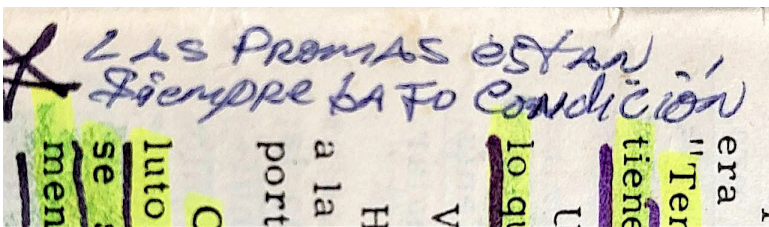 LAS PROMAS ESTAN
SIEMPRE BAJO CONDICIÓN
era
"Ter
tiene
U
lo qu
V
H
a la
port
C
luto
se s
men